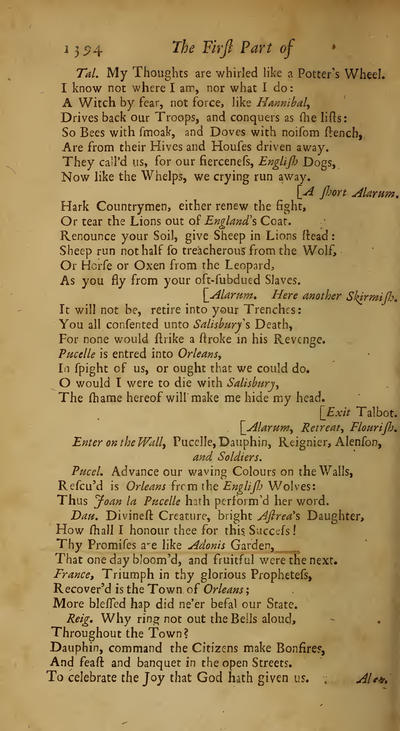 1394 The Firſt Part of
Tal. My Thoughts are whirled like a Potter's Wheel.
I know not where I am, nor what I do:
A Witch by fear, not force, like Hannibal,
Drives back our Troops, and conquers as ſhe liſts:
So Bees with ſmoak, and Doves with noiſom ſtench,
Are from their Hives and Houſes driven away.
They call'd us, for our fierceneſs, Engliſh Dogs,
Now like the Whelps, we crying run away.
[A ſhort Alarum.
Hark Countrymen, either renew the fight,
Or tear the Lions out of England's Coat.
Renounce your Soil, give Sheep in Lions ſtead:
Sheep run not half ſo treacherous from the Wolf,
Or Horſe or Oxen from the Leopard,
As you fly from your oft-ſubdued Slaves.
[Alarum. Here another Skirmiſh.
It will not be, retire into your Trenches:
You all conſented unto Salisbury's Death,
For none would ſtrike a ſtroke in his Revenge.
Pucelle is entred into Orleans,
In ſpight of us, or ought that we could do.
O would I were to die with Salisbury,
The ſhame hereof will make me hide my head.
[Exit Talbot.
[Alarum, Retreat, Flouriſh.
Enter on the Wall, Pucelle, Dauphin, Reignier, Alenſon,
and Soldiers.
Pucel. Advance our waving Colours on the Walls,
Reſcu'd is Orleans from the Engliſh Wolves:
Thus Joan la Pucelle hath perform'd her word.
Dau. Divineſt Creature, bright Aſtrea's Daughter,
How ſhall I honour thee for this Succeſs!
Thy Promiſes are like Adonis Garden,
That one day bloom'd, and fruitful were the next.
France, Triumph in thy glorious Propheteſs,
Recover'd is the Town of Orleans;
More bleſſed hap did ne'er befal our State.
Reig. Why ring not out the Bells aloud,
Throughout the Town?
Dauphin, command the Citizens make Bonfires,
And feaſt and banquet in the open Streets.
To celebrate the Joy that God hath given us.
Alen.